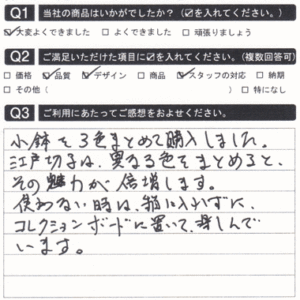 Q1 当社の商品はいかがでしたか？（☑を入れてください。）
☑大変よくできました □よくできました □頑張りましょう
Q2 ご満足いただけた項目に☑を入れてください。（複数回答可）
□価格 ☑品質 ☑デザイン □商品 ☑スタッフの対応 □納期
□その他（ ） □特になし
Q3 ご利用にあたってご感想をおよせください。
小鉢を3色まとめて購入しました。
江戸切子は、異なる色をまとめると、
その魅力が倍増します。
使わない時は、箱に入れずに、
コレクションボードに置いて、楽しんで
います。